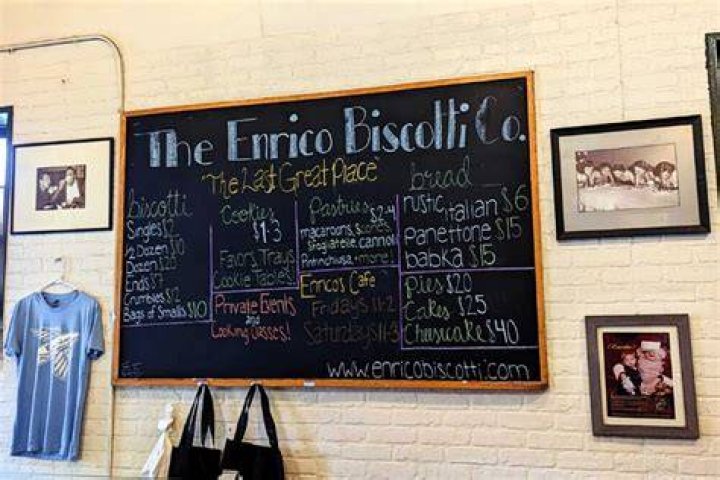 The Enrico Biscotti Co.
"The Last Great Place"
biscotti
Singles $2
1/2 Dozen $10
Dozen $20
Ends $7
Crumbles $2
Bags of Smalls $10
Cookies
$1-3
Favors Trays
Cookie Tables
Private Events
and
Cooking Classes!
Pastries $2-4
macaroons, scones
sfogliatelle, cannoli
+more!
Enricos Cafe
Fridays 11-2
Saturdays 11-3
bread
rustic italian $6
Panettone $15
babka $15
Pies $20
Cakes $25
Cheesecake $40
www.enricobiscotti.com